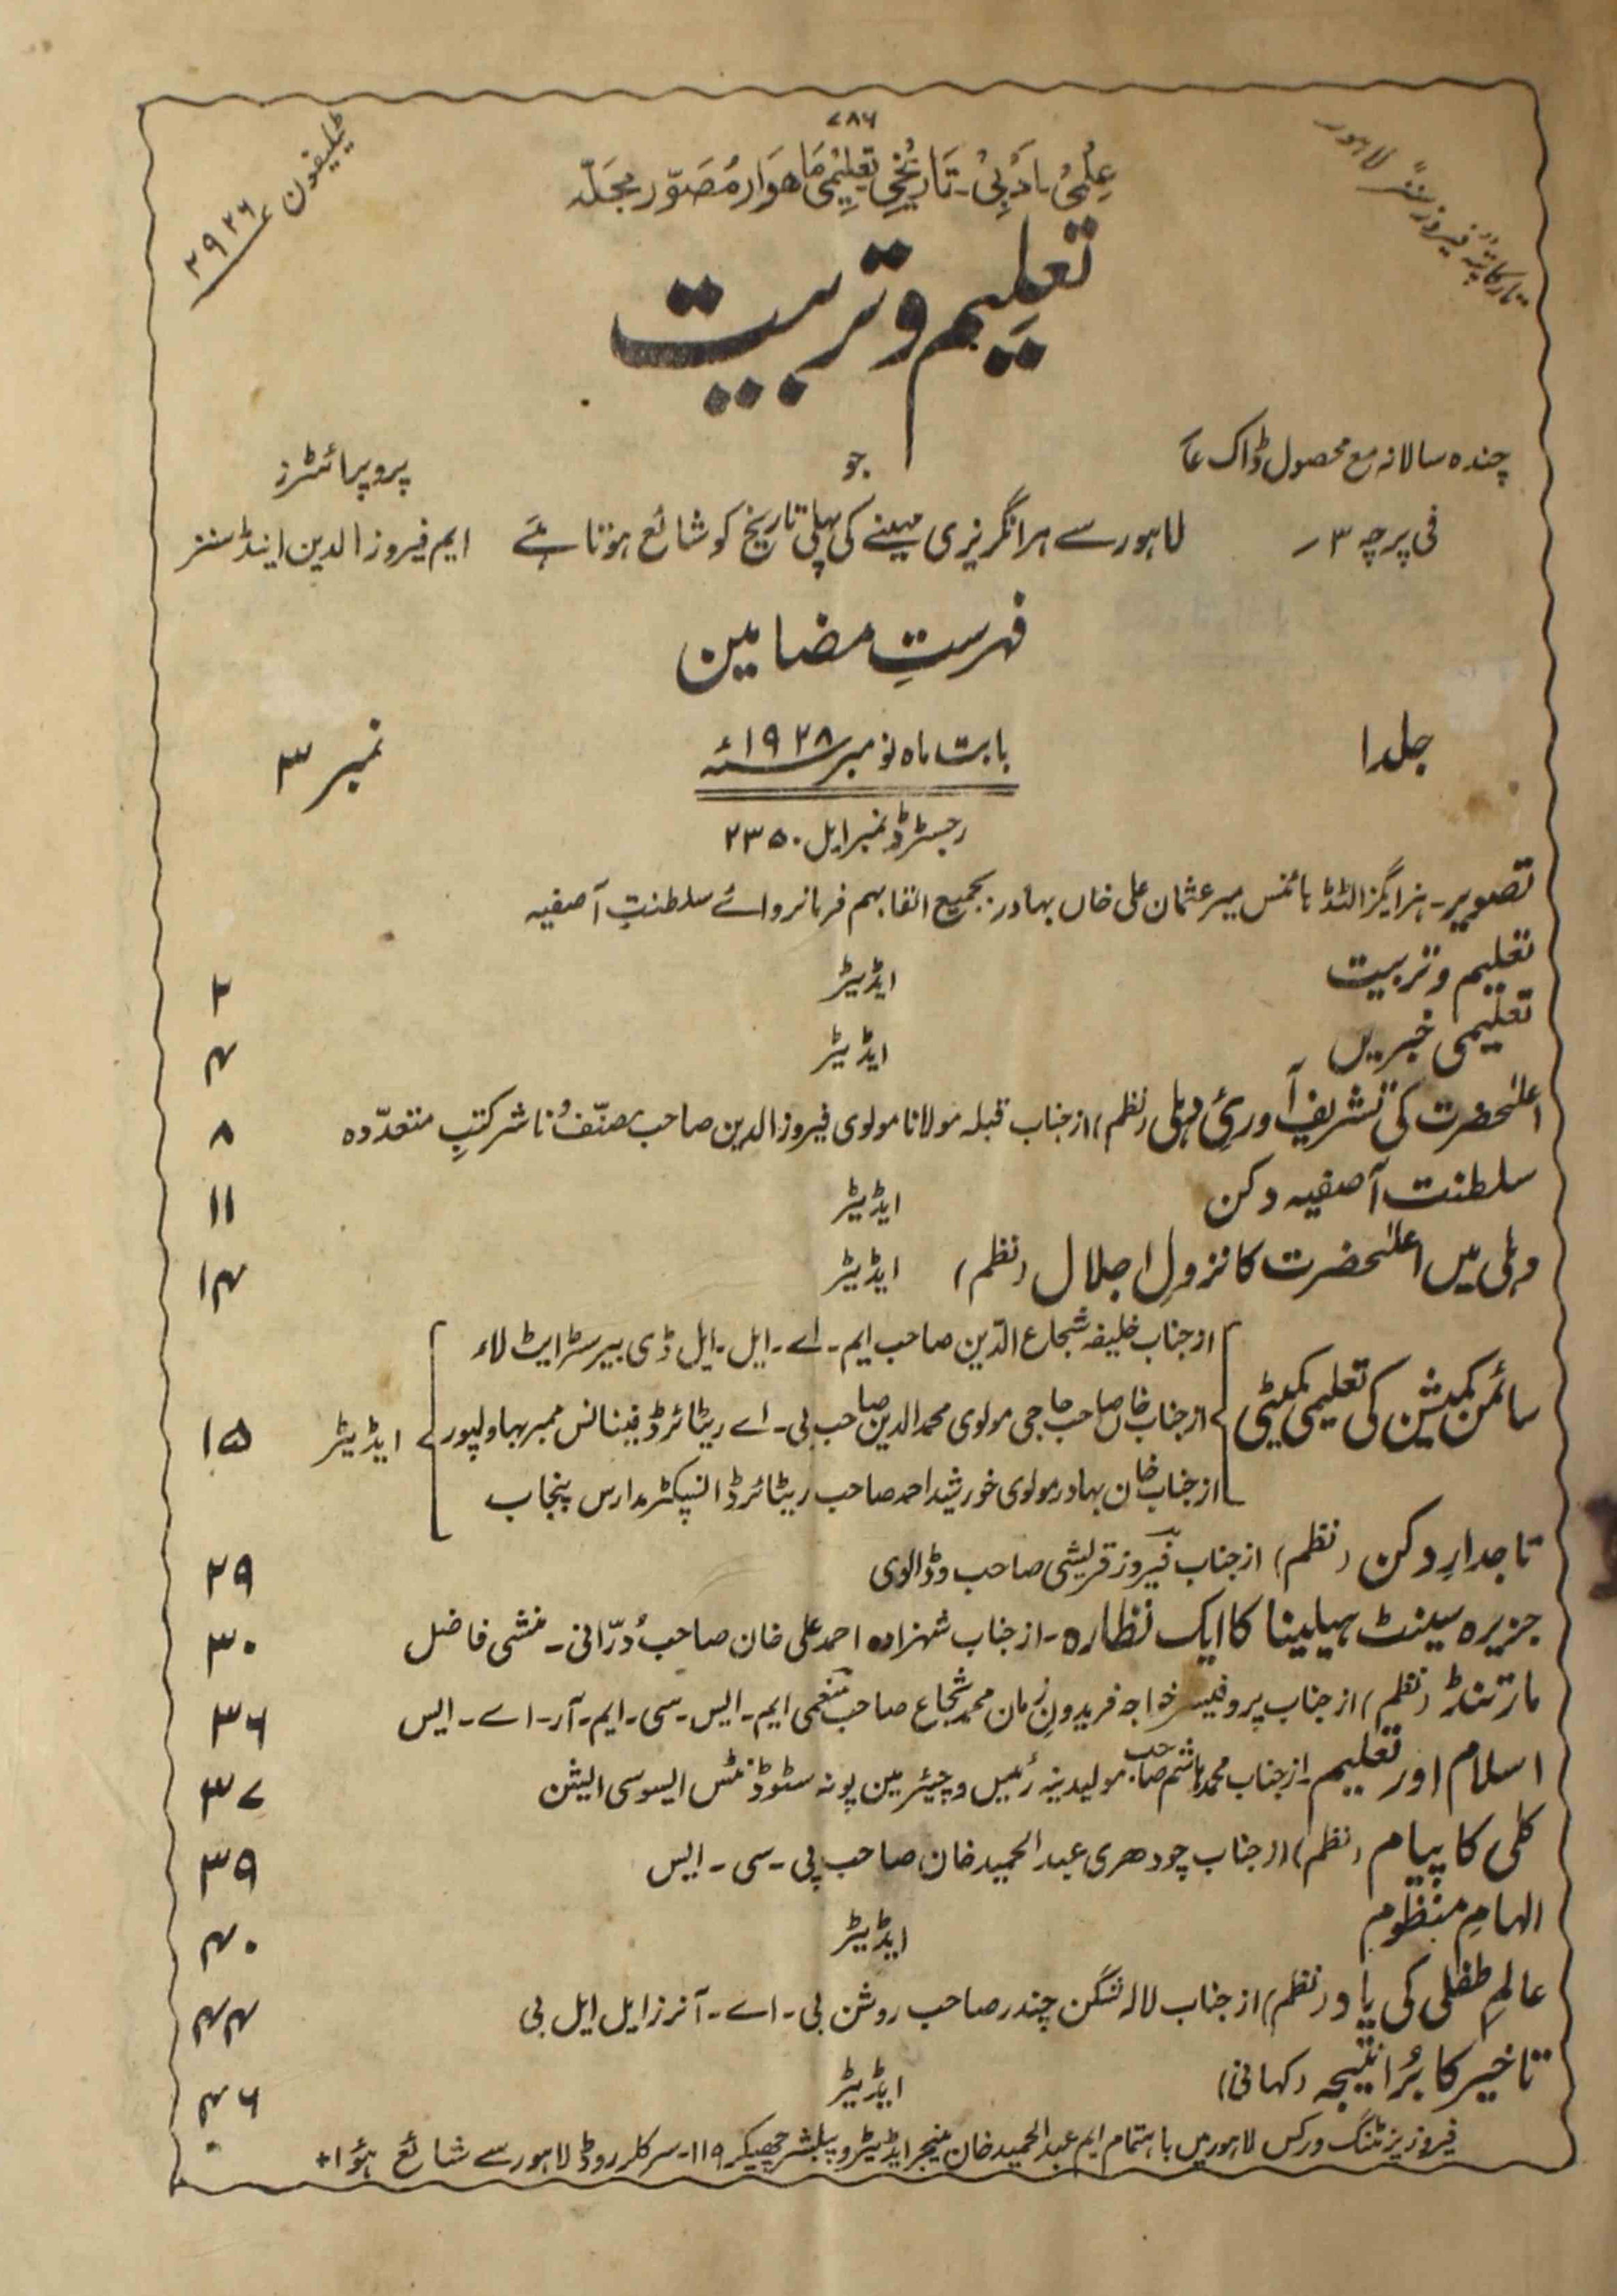 ۷۸۶
علمی۔ ادبی۔ تاریخی تعلیمی ماہوار مصوّر مجلّہ
تار کا پتہ فیروز سنز لاہور
ٹیلیفون ۲۹۲۶
تعلیم و تربیت
چندہ سالانہ مع محصول ڈاک
جو
پروپرائٹرز
فی پرچہ ۳؍
لاہور سے ہر انگریزی مہینے کی پہلی تاریخ کو شائع ہوتا ہے
ایم فیروز الدین اینڈ سنز
فہرستِ مضامین
جلد ۱
بابت ماہ نومبر ۱۹۲۸ء
نمبر ۳
رجسٹرڈ نمبر ایل ۲۳۵۰
تصویر۔ ہز اگزالٹڈ ہائنس میر عثمان علی خاں بہادر بجمیع القابہم فرمانروائے سلطنتِ آصفیہ
تعلیم و تربیت ایڈیٹر ۲
تعلیمی خبریں ایڈیٹر ۴
اعلٰحضرت کی تشریف آوریٔ دہلی (نظم) از جناب قبلہ مولانا مولوی فیروز الدین صاحب مصنّف و ناشر کتبِ متعدّدہ ۸
سلطنت آصفیہ دکن ایڈیٹر ۱۱
دہلی میں اعلٰحضرت کا نزولِ اجلال (نظم) ایڈیٹر ۱۴
سائمن کمیشن کی تعلیمی کمیٹی
از جناب خلیفہ شجاع الدّین صاحب ایم۔ اے۔ ایل۔ ایل ڈی بیرسٹر ایٹ لاء
از جناب خاں صاحب حاجی مولوی محمد الدین صاحب بی۔ اے ریٹائرڈ فینانس ممبر بہاولپور
از جناب خان بہادر مولوی خورشید احمد صاحب ریٹائرڈ انسپکٹر مدارس پنجاب
ایڈیٹر ۱۵
تاجدارِ دکن (نظم) از جناب فیروز قریشی صاحب وڈالوی ۲۹
جزیرہ سینٹ ہیلینا کا ایک نظارہ۔ از جناب شہزادہ احمد علی خان صاحب دُرّانی۔ منشی فاضل ۳۰
مارتنڈ (نظم) از جناب پروفیسر خواجہ فریدون زمان محمد شجاع صاحب منعمی ایم۔ ایس۔ سی۔ ایم۔ آر۔ اے۔ ایس ۳۶
اسلام اور تعلیم۔ از جناب محمد ہاشم صاحب مولیدینہ رئیس و چیئرمین پونہ سٹوڈنٹس ایسوسی ایشن ۳۷
کلی کا پیام (نظم) از جناب چودھری عبد الحمید خان صاحب پی۔ سی۔ ایس ۳۹
الہامِ منظوم ایڈیٹر ۴۰
عالمِ طفلی کی یاد (نظم) از جناب لالہ شگن چندر صاحب روشن بی۔ اے۔ آنرز ایل ایل بی ۴۴
تاخیر کا بُرا نتیجہ (کہانی) ایڈیٹر ۴۶
فیروز پرنٹنگ ورکس لاہور میں باہتمام ایم عبد الحمید خان منیجر ایڈیٹر و پبلشر چھپکر ۱۱۹۔ سرکلر روڈ لاہور سے شائع ہؤا+